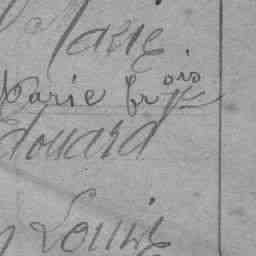 Marie
Marie frçois
Edouard
Louis